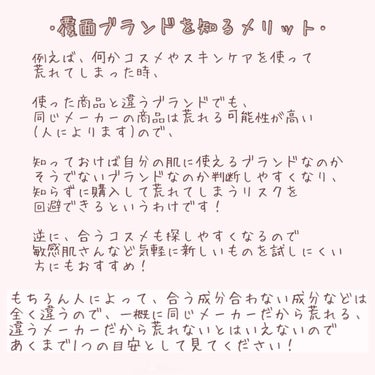 ・覆面ブランドを知るメリット・
例えば、何かコスメやスキンケアを使って
荒れてしまった時、
使った商品と違うブランドでも、
同じメーカーの商品は荒れる可能性が高い
(人によります)ので、
知っておけば自分の肌に使えるブランドなのか
そうでないブランドなのか判断しやすくなり、
知らずに購入して荒れてしまうリスクを
回避できるというわけです！
逆に、合うコスメも探しやすくなるので
敏感肌さんなど気軽に新しいものを試しにくい
方にもおすすめ！
もちろん人によって、合う成分合わない成分などは
全く違うので、一概に同じメーカーだから荒れる、
違うメーカーだから荒れないとはいえないので
あくまで1つの目安として見てください！